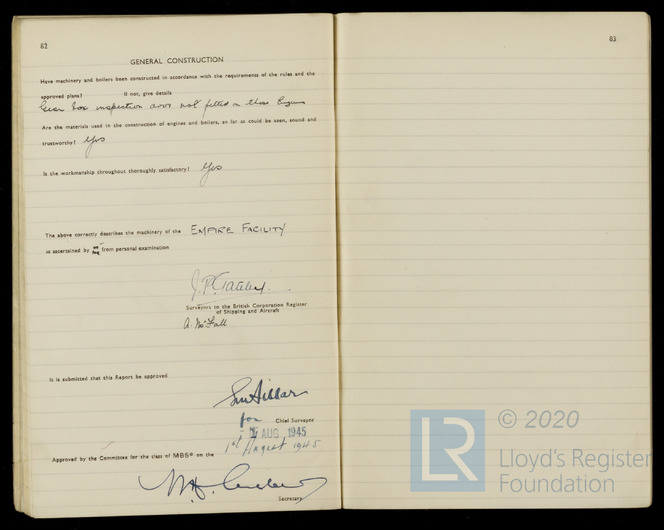 82
GENERAL CONSTRUCTION
Have machinery and boilers been constructed in accordance with the requirements of the rules and the
approved plans? If not, give details
Gear box inspection doors not fitted in these Engines
Are the materials used in the construction of engines and boilers, so far as could be seen, sound and
trustworthy? Yes
Is the workmanship throughout thoroughly satisfactory? Yes
The above correctly describes the machinery of the EMPIRE FACILITY
as ascertained by from personal examination
Surveyors to the British Corporation Register
of Shipping and Aircraft
A. McFall
It is submitted that this Report be approved
for Chief Surveyor
1 AUG 1945
Approved by the Committee for the class of MBS* on the 1st August 1945
Secretary
83
LR
© 2020
Lloyd's Register
Foundation